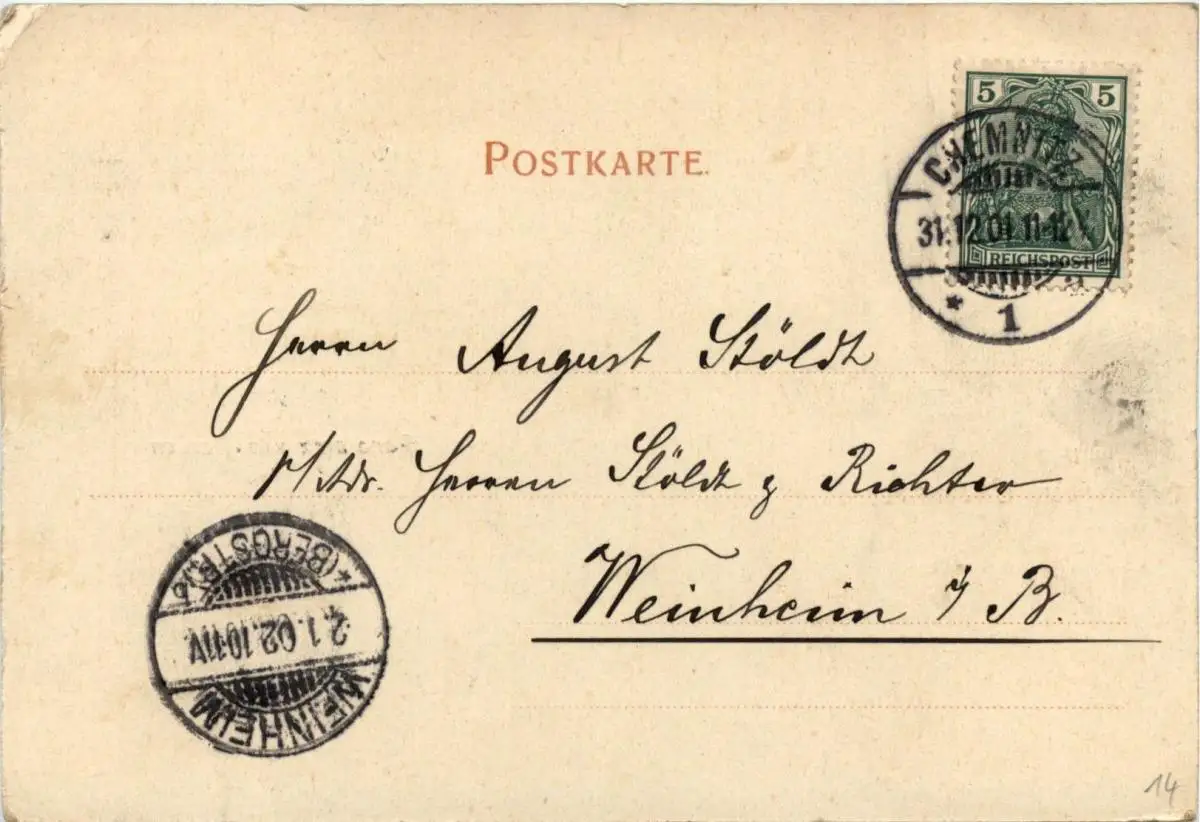 POSTKARTE.
5 5
REICHSPOST
CHEMNITZ
31.12.01.11-12V
* 1
Herrn August Stöldt
p/Adr. Herrn Stöldt & Richter
Weinheim a/B.
WEINHEIM
2.1.02.10-11V
*(BERGSTR.)
14